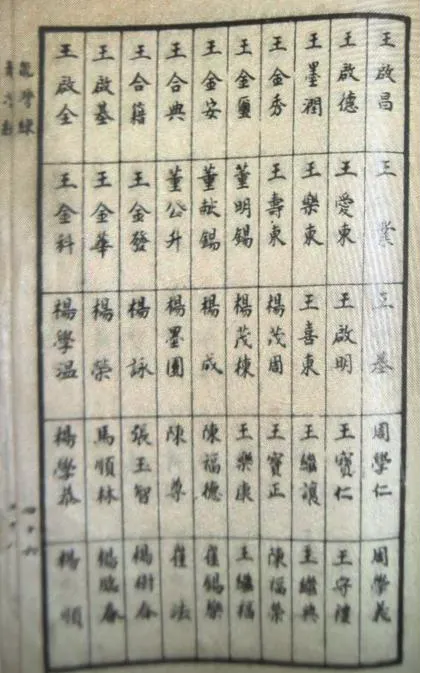 王啟昌 王業 王基 周學仁 周學義
王啟德 王愛東 王啟明 王寶仁 王守禮
王墨潤 王樂東 王喜東 王繼讓 王繼典
王金秀 王壽東 楊茂周 王寶正 陳福榮
王金璽 董明錫 楊茂棟 王樂康 王繼福
王金安 董献錫 楊成 陳福德 崔錫榮
王合典 董公升 楊墨園 陳尊 崔法
王合籍 王金發 楊詠 張玉智 楊樹春
王啟基 王金華 楊榮 馬順林 楊臨春
王啟全 王金科 楊學温 楊學恭 楊順